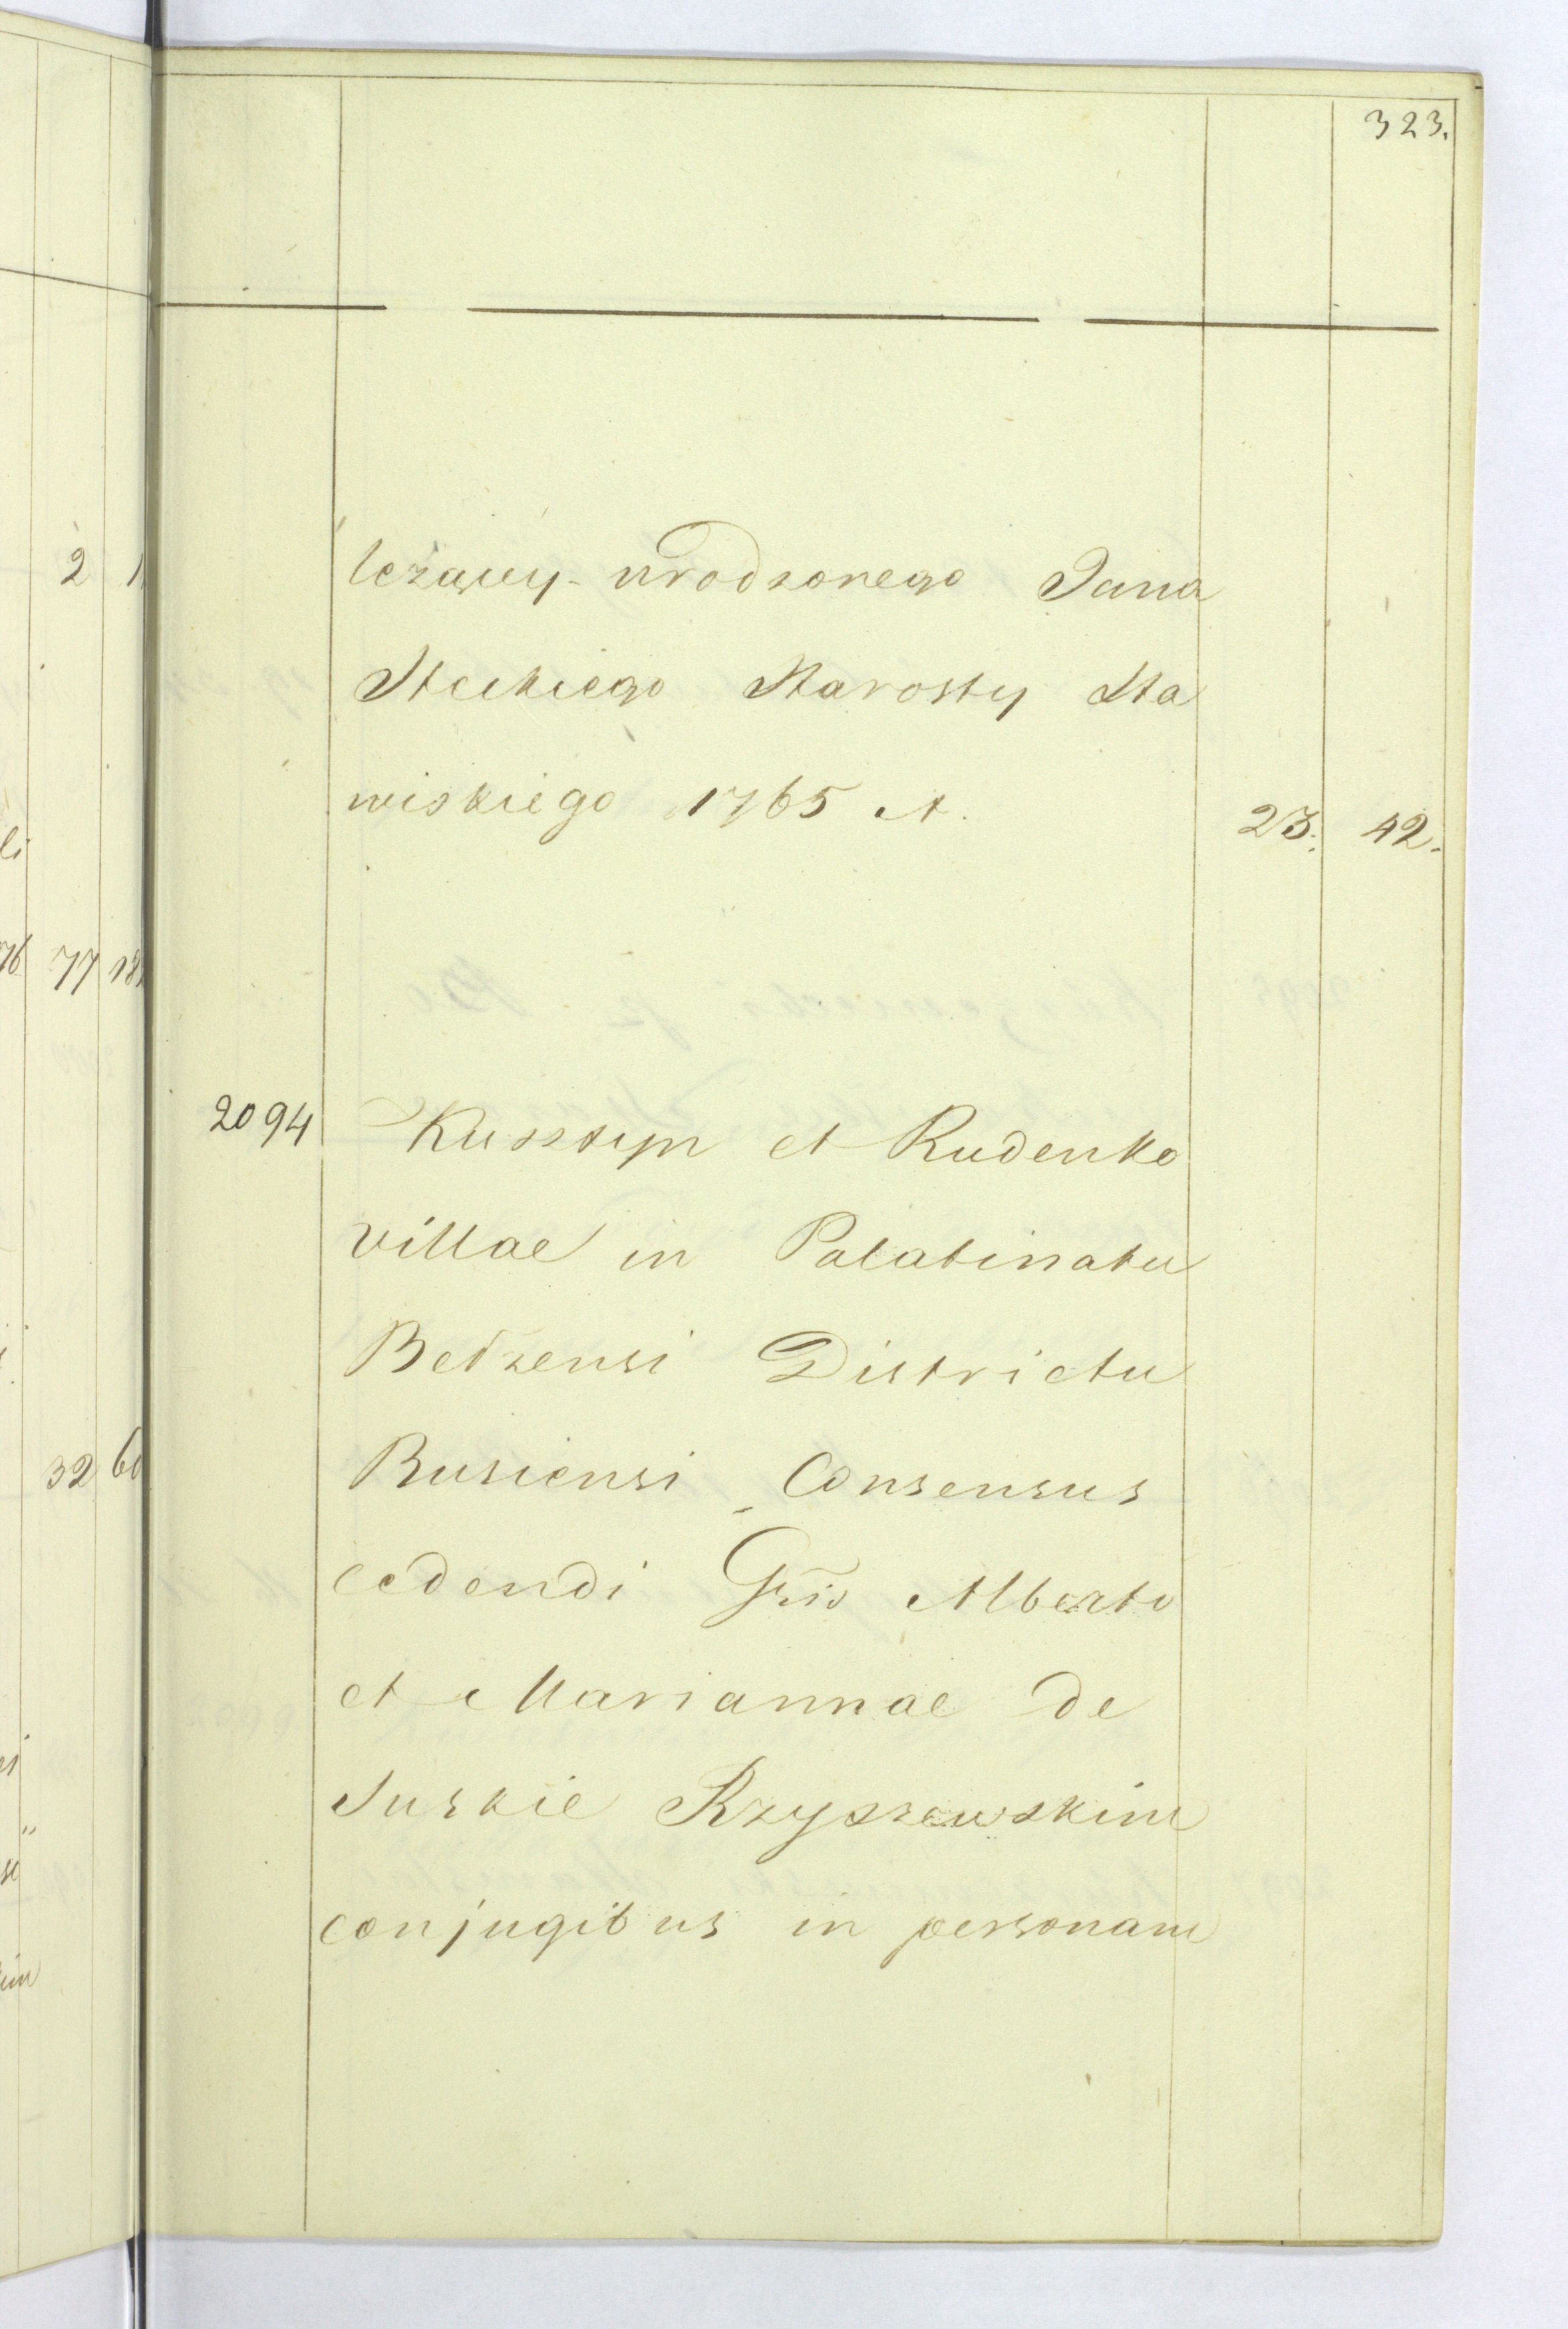 323.
leżący urodzonego Jana
Steckiego Starosty Sta
wiskiego 1765 A.
23. 42.
2094 Kusztyn et Rudenko
villae in Palatinatu
Bełzensi Districtu
Busiensi Consensus
cedendi Gsis Alberto
et Mariannae de
Suskie Rzyszewskim
conjugibus in personam
2
77
32